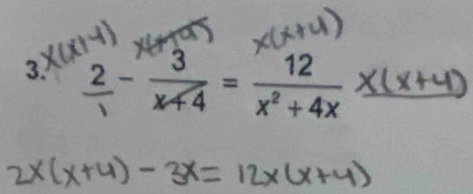 x(x+4) x(x+4) x(x+4)
3. 2/1 - 3/x+4 = 12/x² + 4x x(x+4)
2x(x+4) - 3x = 12x(x+4)